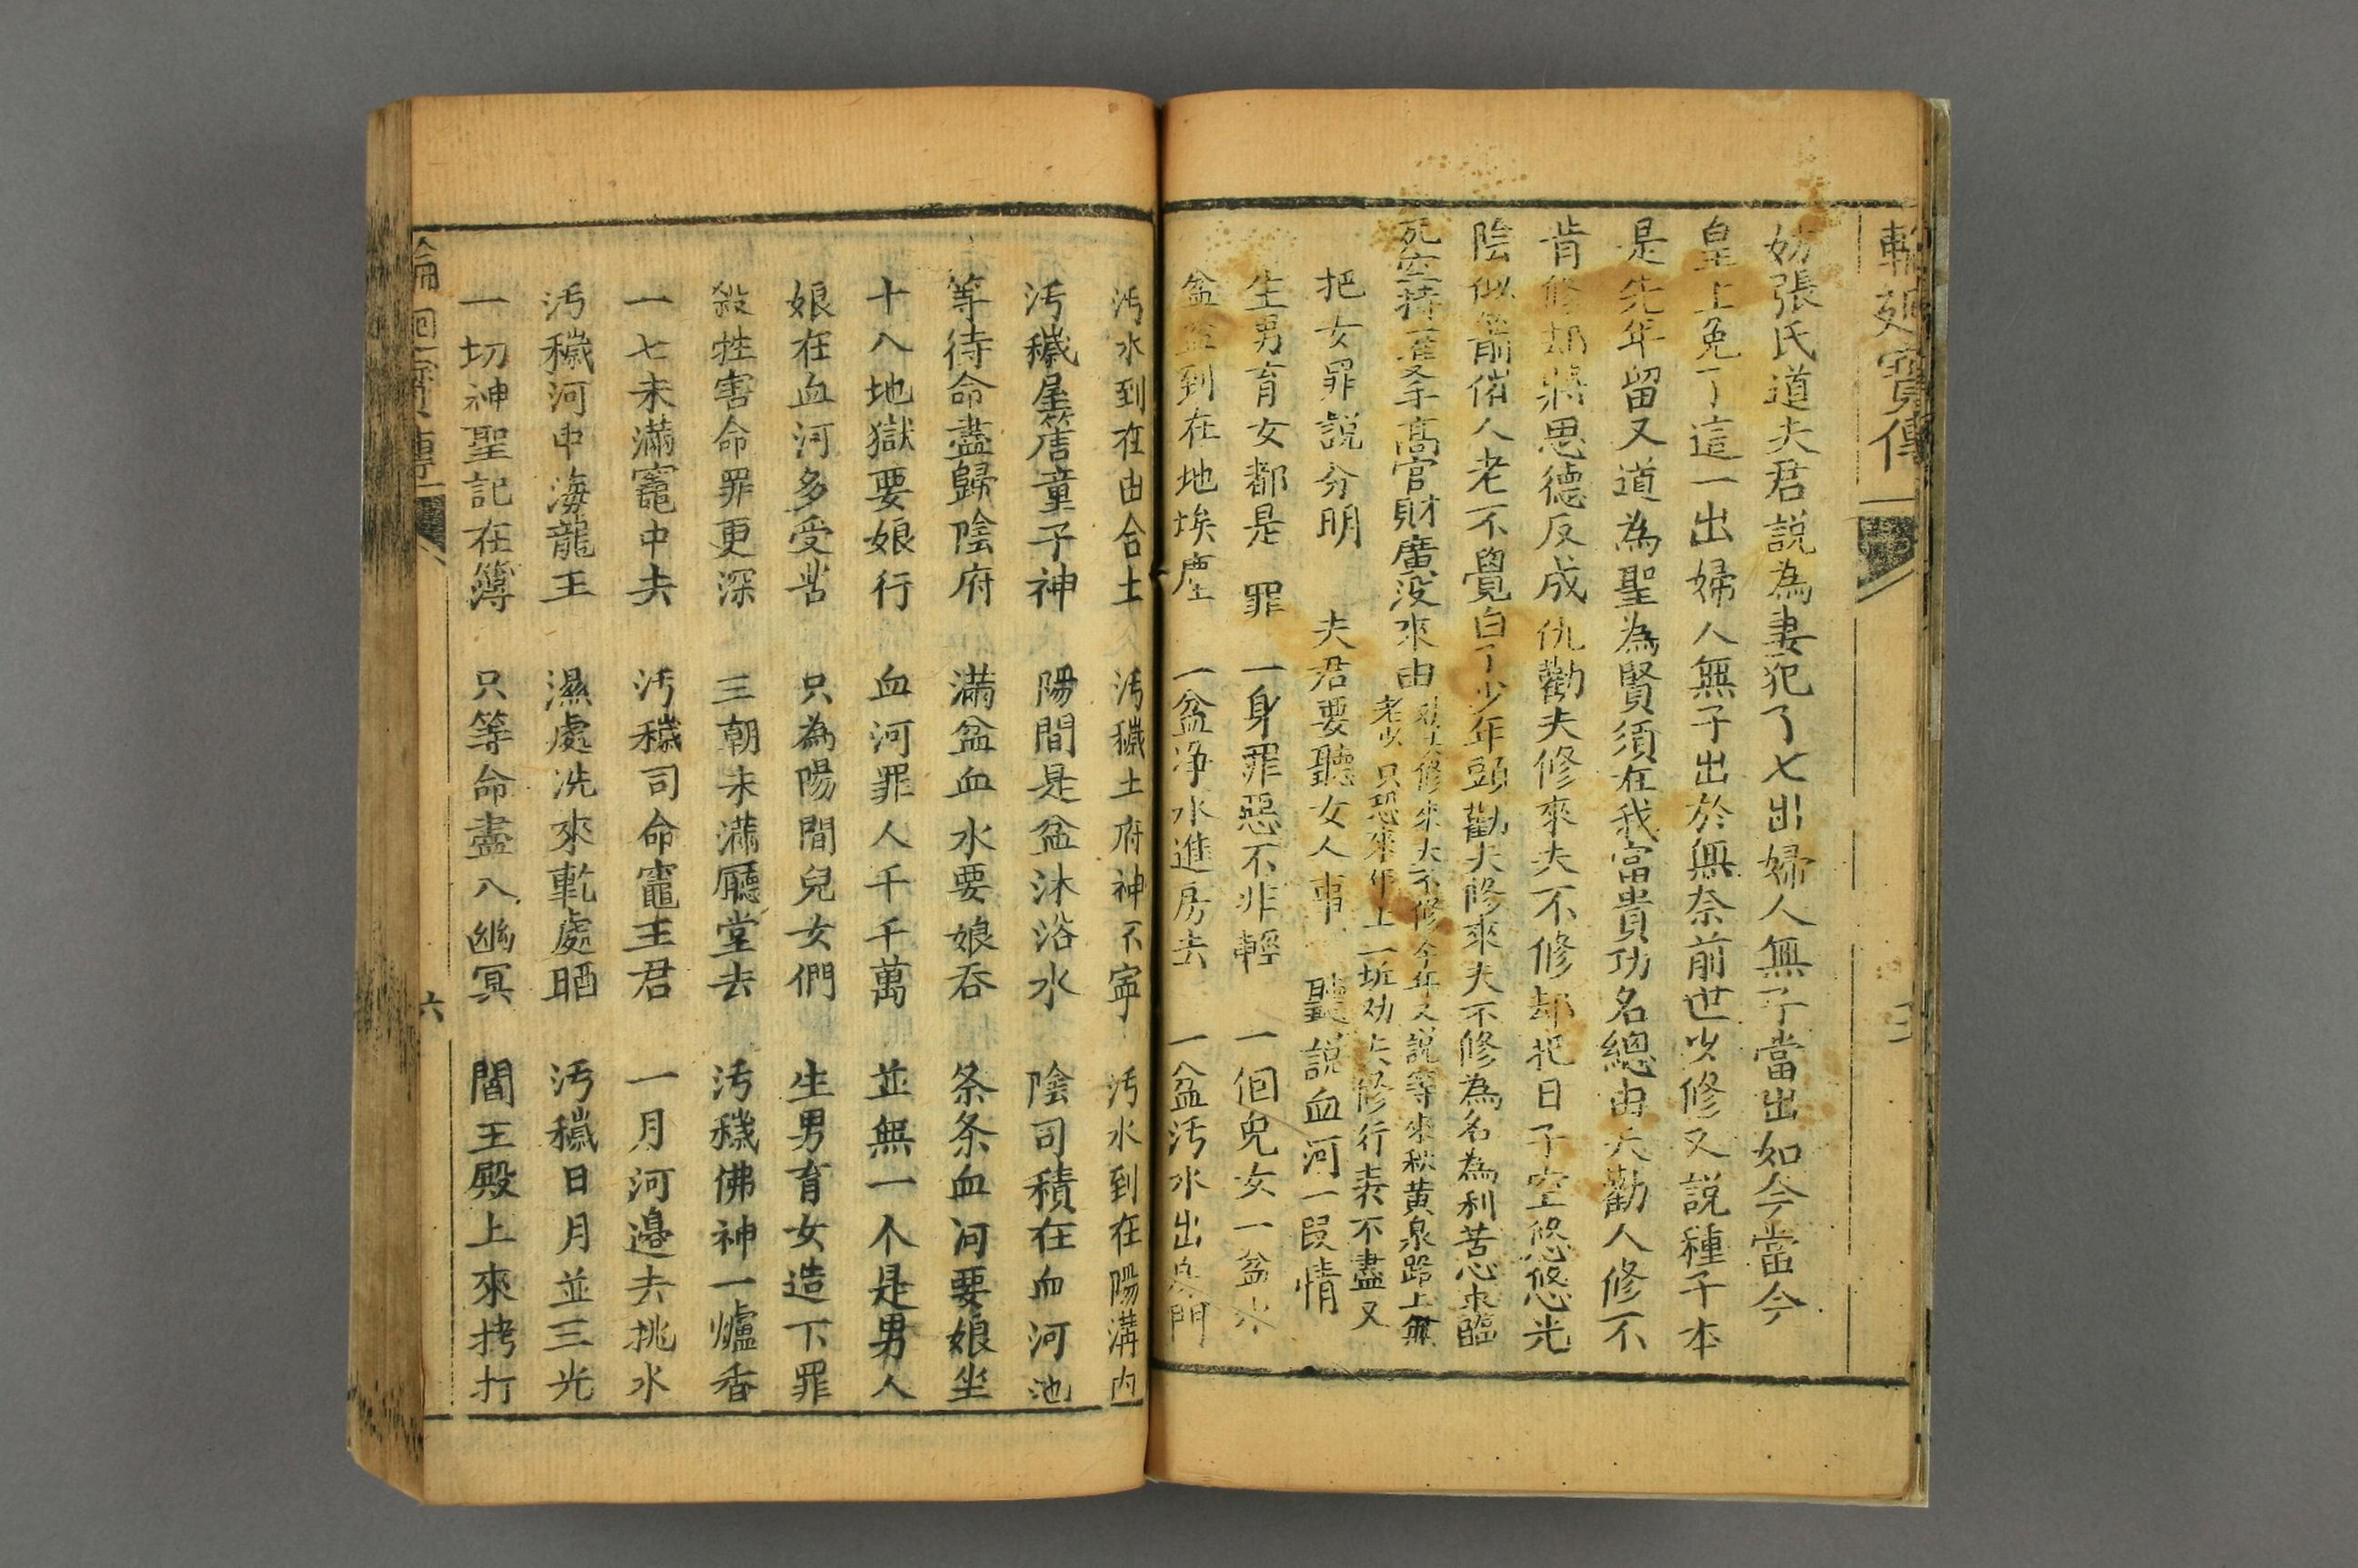 輪廻寶傳
三
妨張氏道夫君説為妻犯了七出婦人無子當出如今當今
皇上免了這一出婦人無子出於無奈前世少修又説種子本
是先年留又道為聖為賢須在我富貴功名總由天勸人修不
肯修却將恩德反成仇勸夫修來夫不修却把日子空悠悠光
陰似箭催人老不覺白了少年頭勸夫修來夫不修為名為利苦心求臨
死空持一雙手高官財廣没來由
劝夫修來夫不修今年又説等來秋黄泉路上無
老少只恐來年上一坵劝夫修行表不盡又
把女罪説分明 夫君要聽女人事 聽説血河一段情
生男育女都是罪 一身罪惡不非輕 一個兒女一盆水
盆盆到在地埃塵 一盆净水進房去 一盆汚水出房門
汚水到在由合土 汚穢土府神不寜 汚水到在陽溝内
汚穢屋簷童子神 陽間是盆沐浴水 陰司積在血河池
等待命盡歸陰府 滿盆血水要娘吞 条条血河要娘坐
十八地獄要娘行 血河罪人千千萬 並無一个是男人
娘在血河多受苦 只為陽間兒女們 生男育女造下罪
殺牲害命罪更深 三朝未滿廳堂去 汚穢佛神一爐香
一七未滿竈中去 汚穢司命竈王君 一月河邉去挑水
汚穢河中海龍王 濕處洗來乾處晒 汚穢日月並三光
一切神聖記在簿 只等命盡入幽冥 閻王殿上來拷打
輪回寶傳
六